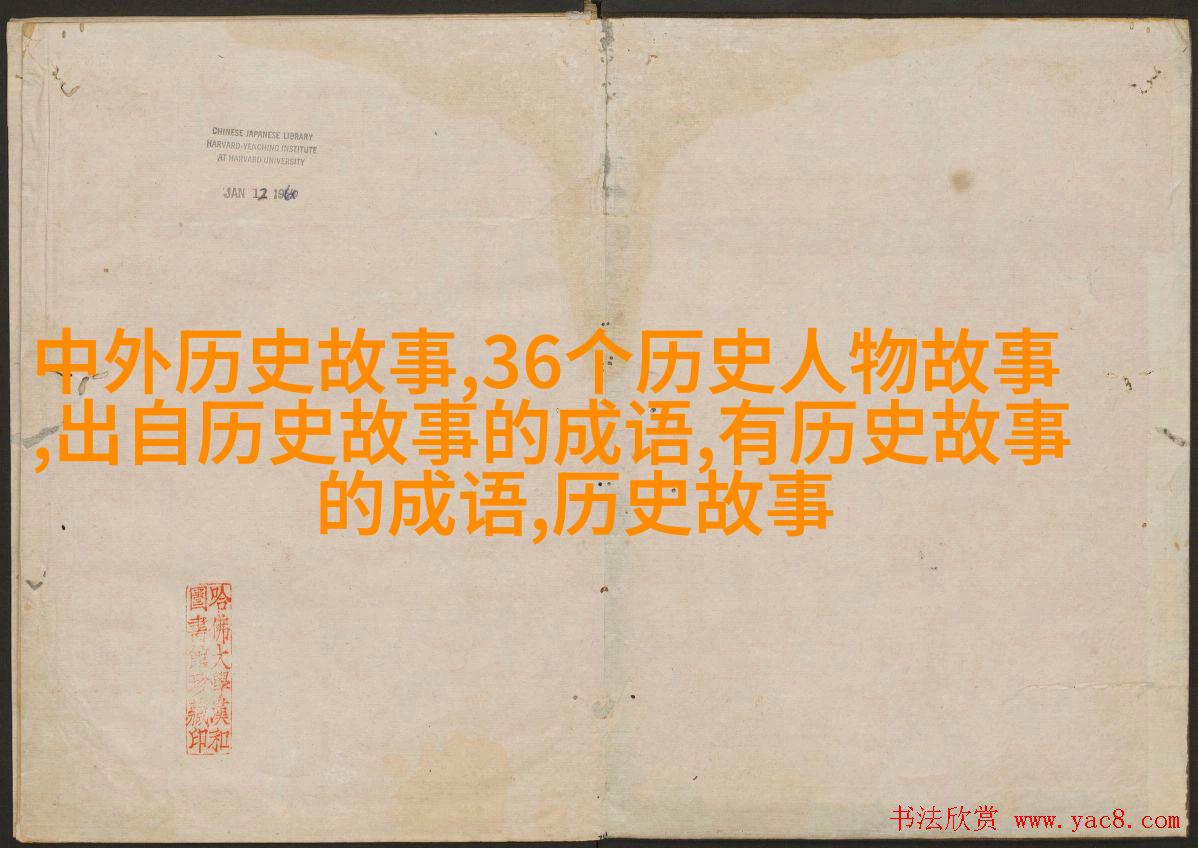 CHINESE-JAPANESE LIBRARY
HARVARD-YENCHING INSTITUTE
AT HARVARD UNIVERSITY
JAN 12 1960
中外历史故事,36个历史人物故事
,出自历史故事的成语,有历史故事
的成语,历史故事
哈佛大學漢和
圖書館珍藏印
书法欣赏 www.yac8.com